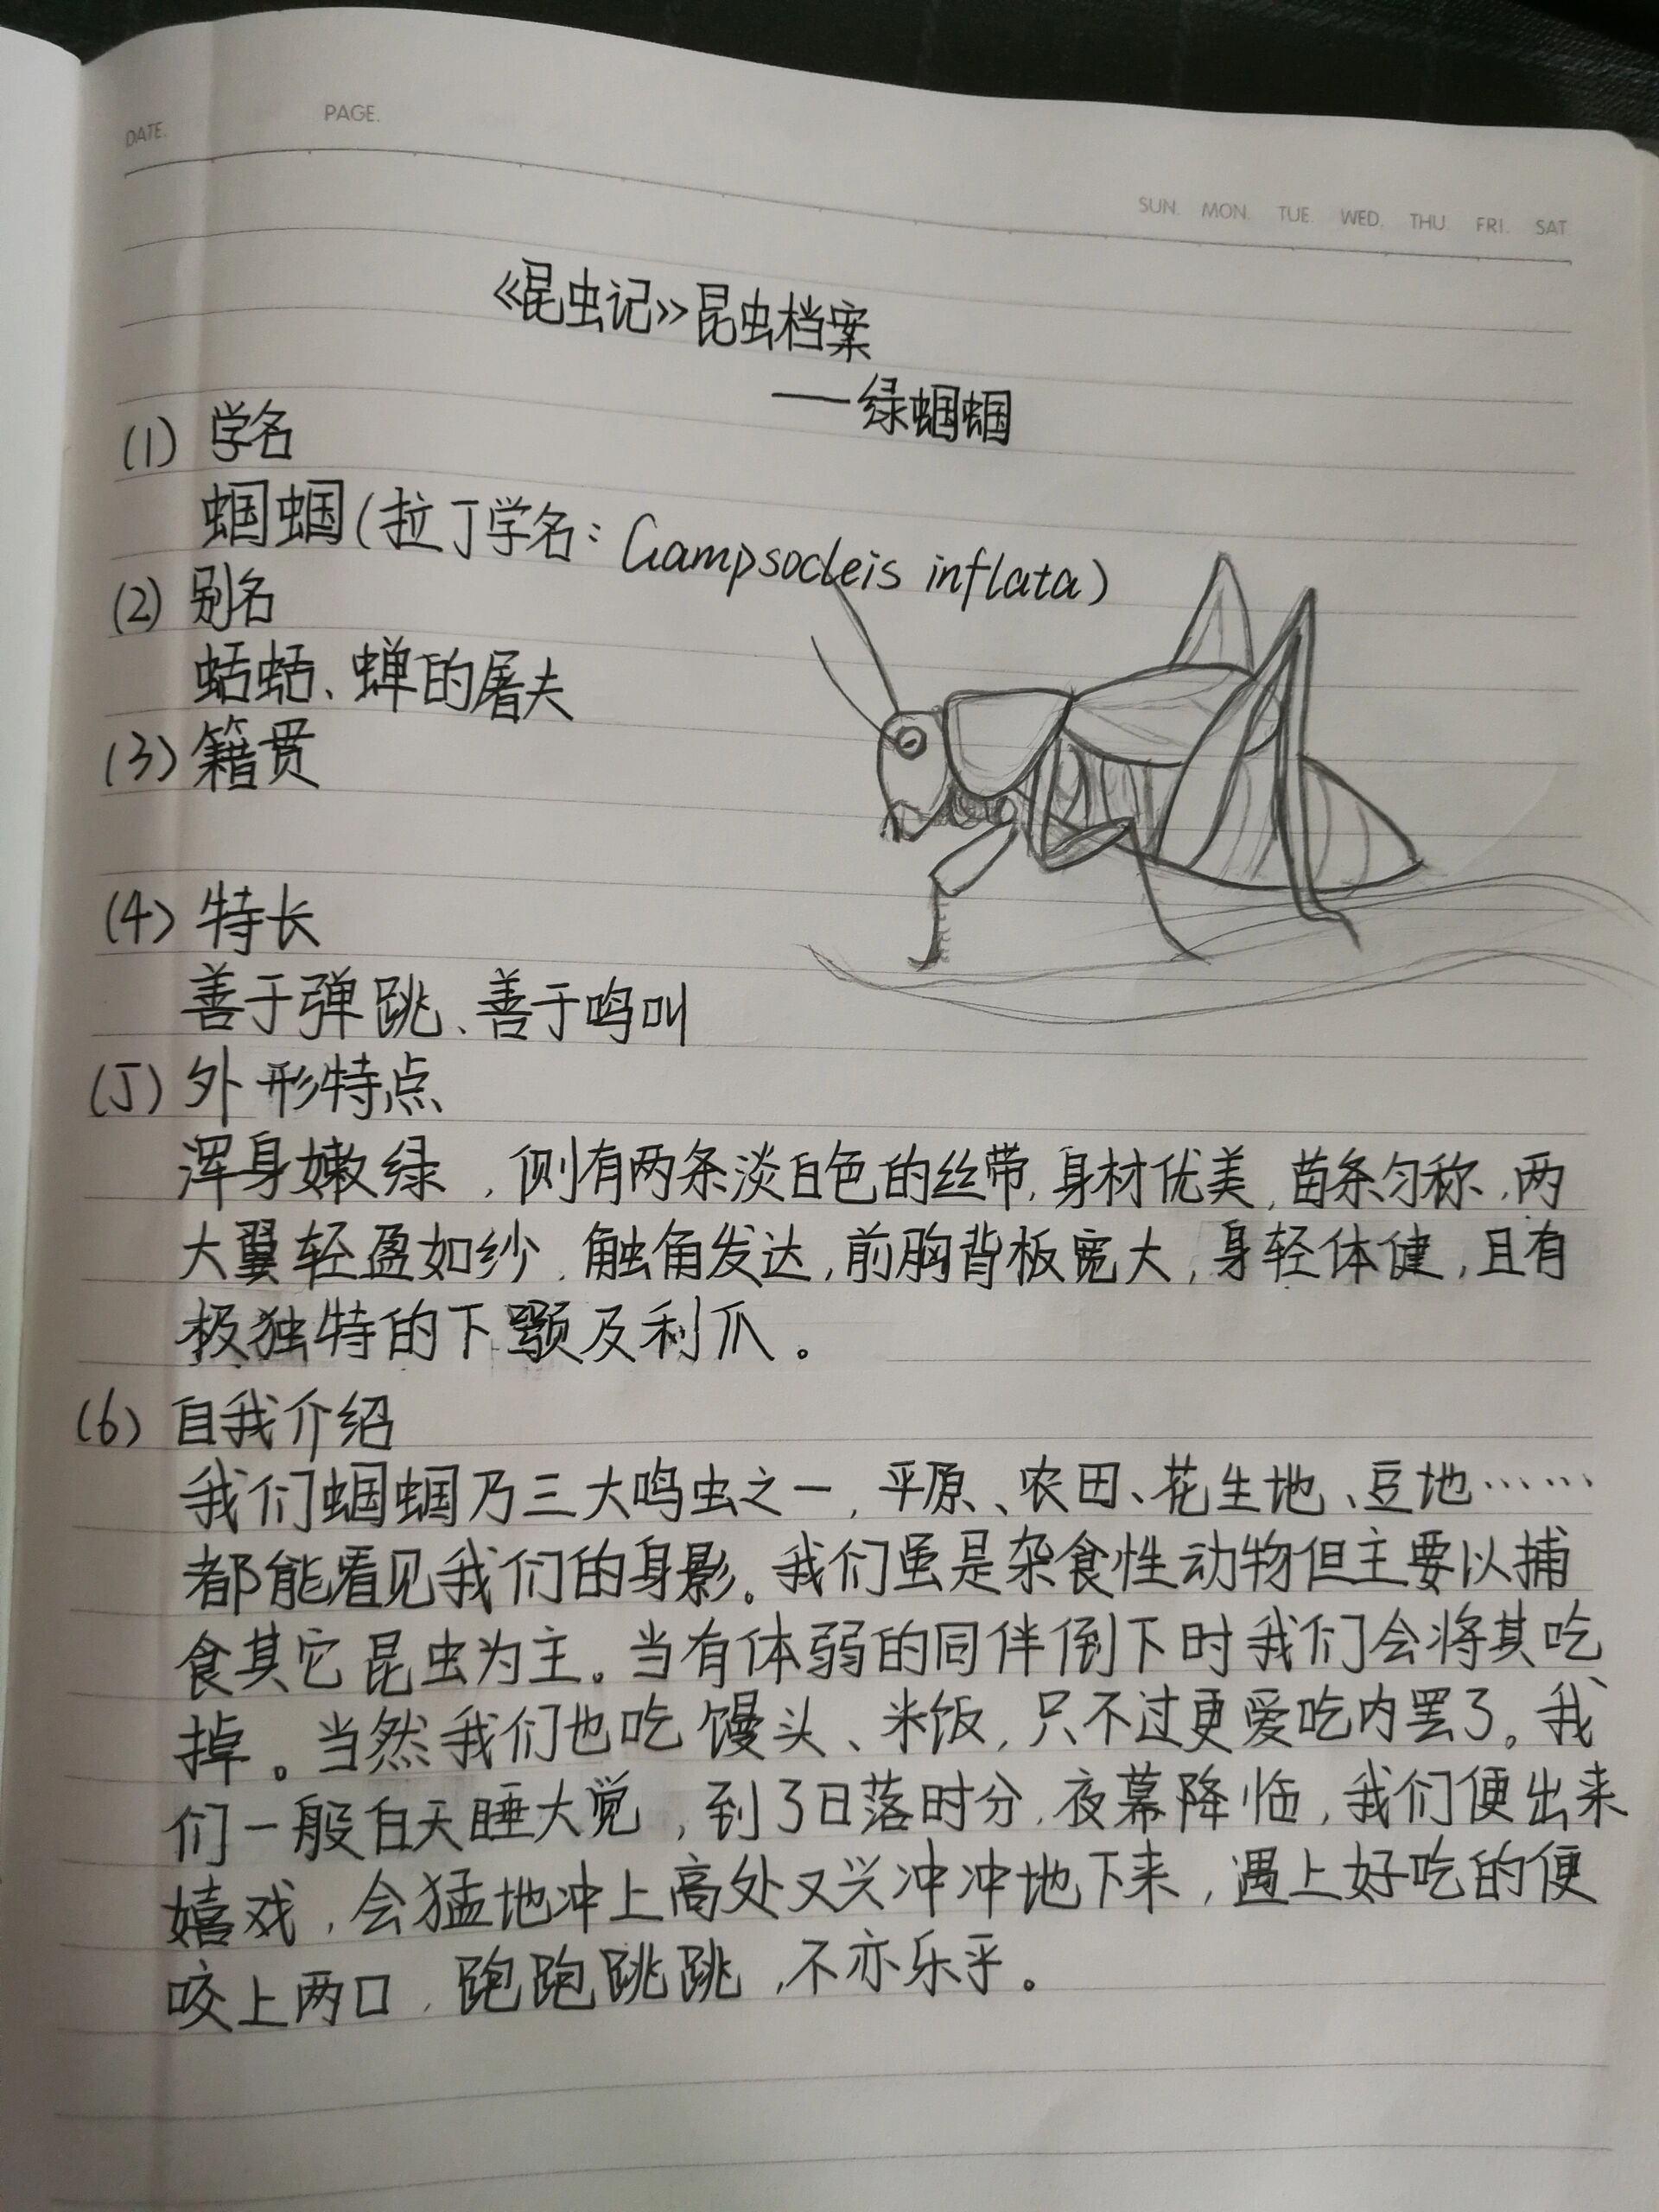 DATE. PAGE.
SUN. MON. TUE. WED. THU. FRI. SAT
《昆虫记》昆虫档案
——绿蝈蝈
(1) 学名
蝈蝈(拉丁学名：Gampsocleis inflata)
(2) 别名
蛞蛞、蝉的屠夫
(3) 籍贯
(4) 特长
善于弹跳、善于鸣叫
(5) 外形特点
浑身嫩绿，侧有两条淡白色的丝带,身材优美,苗条匀称,两
大翼轻盈如纱,触角发达,前胸背板宽大,身轻体健,且有
极独特的下颚及利爪。
(6) 自我介绍
我们蝈蝈乃三大鸣虫之一,平原、农田、花生地、豆地……
都能看见我们的身影。我们虽是杂食性动物但主要以捕
食其它昆虫为主。当有体弱的同伴倒下时我们会将其吃
掉。当然我们也吃馒头、米饭,只不过更爱吃肉罢了。我
们一般白天睡大觉,到了日落时分,夜幕降临,我们便出来
嬉戏,会猛地冲上高处又兴冲冲地下来,遇上好吃的便
咬上两口,跑跑跳跳,不亦乐乎。